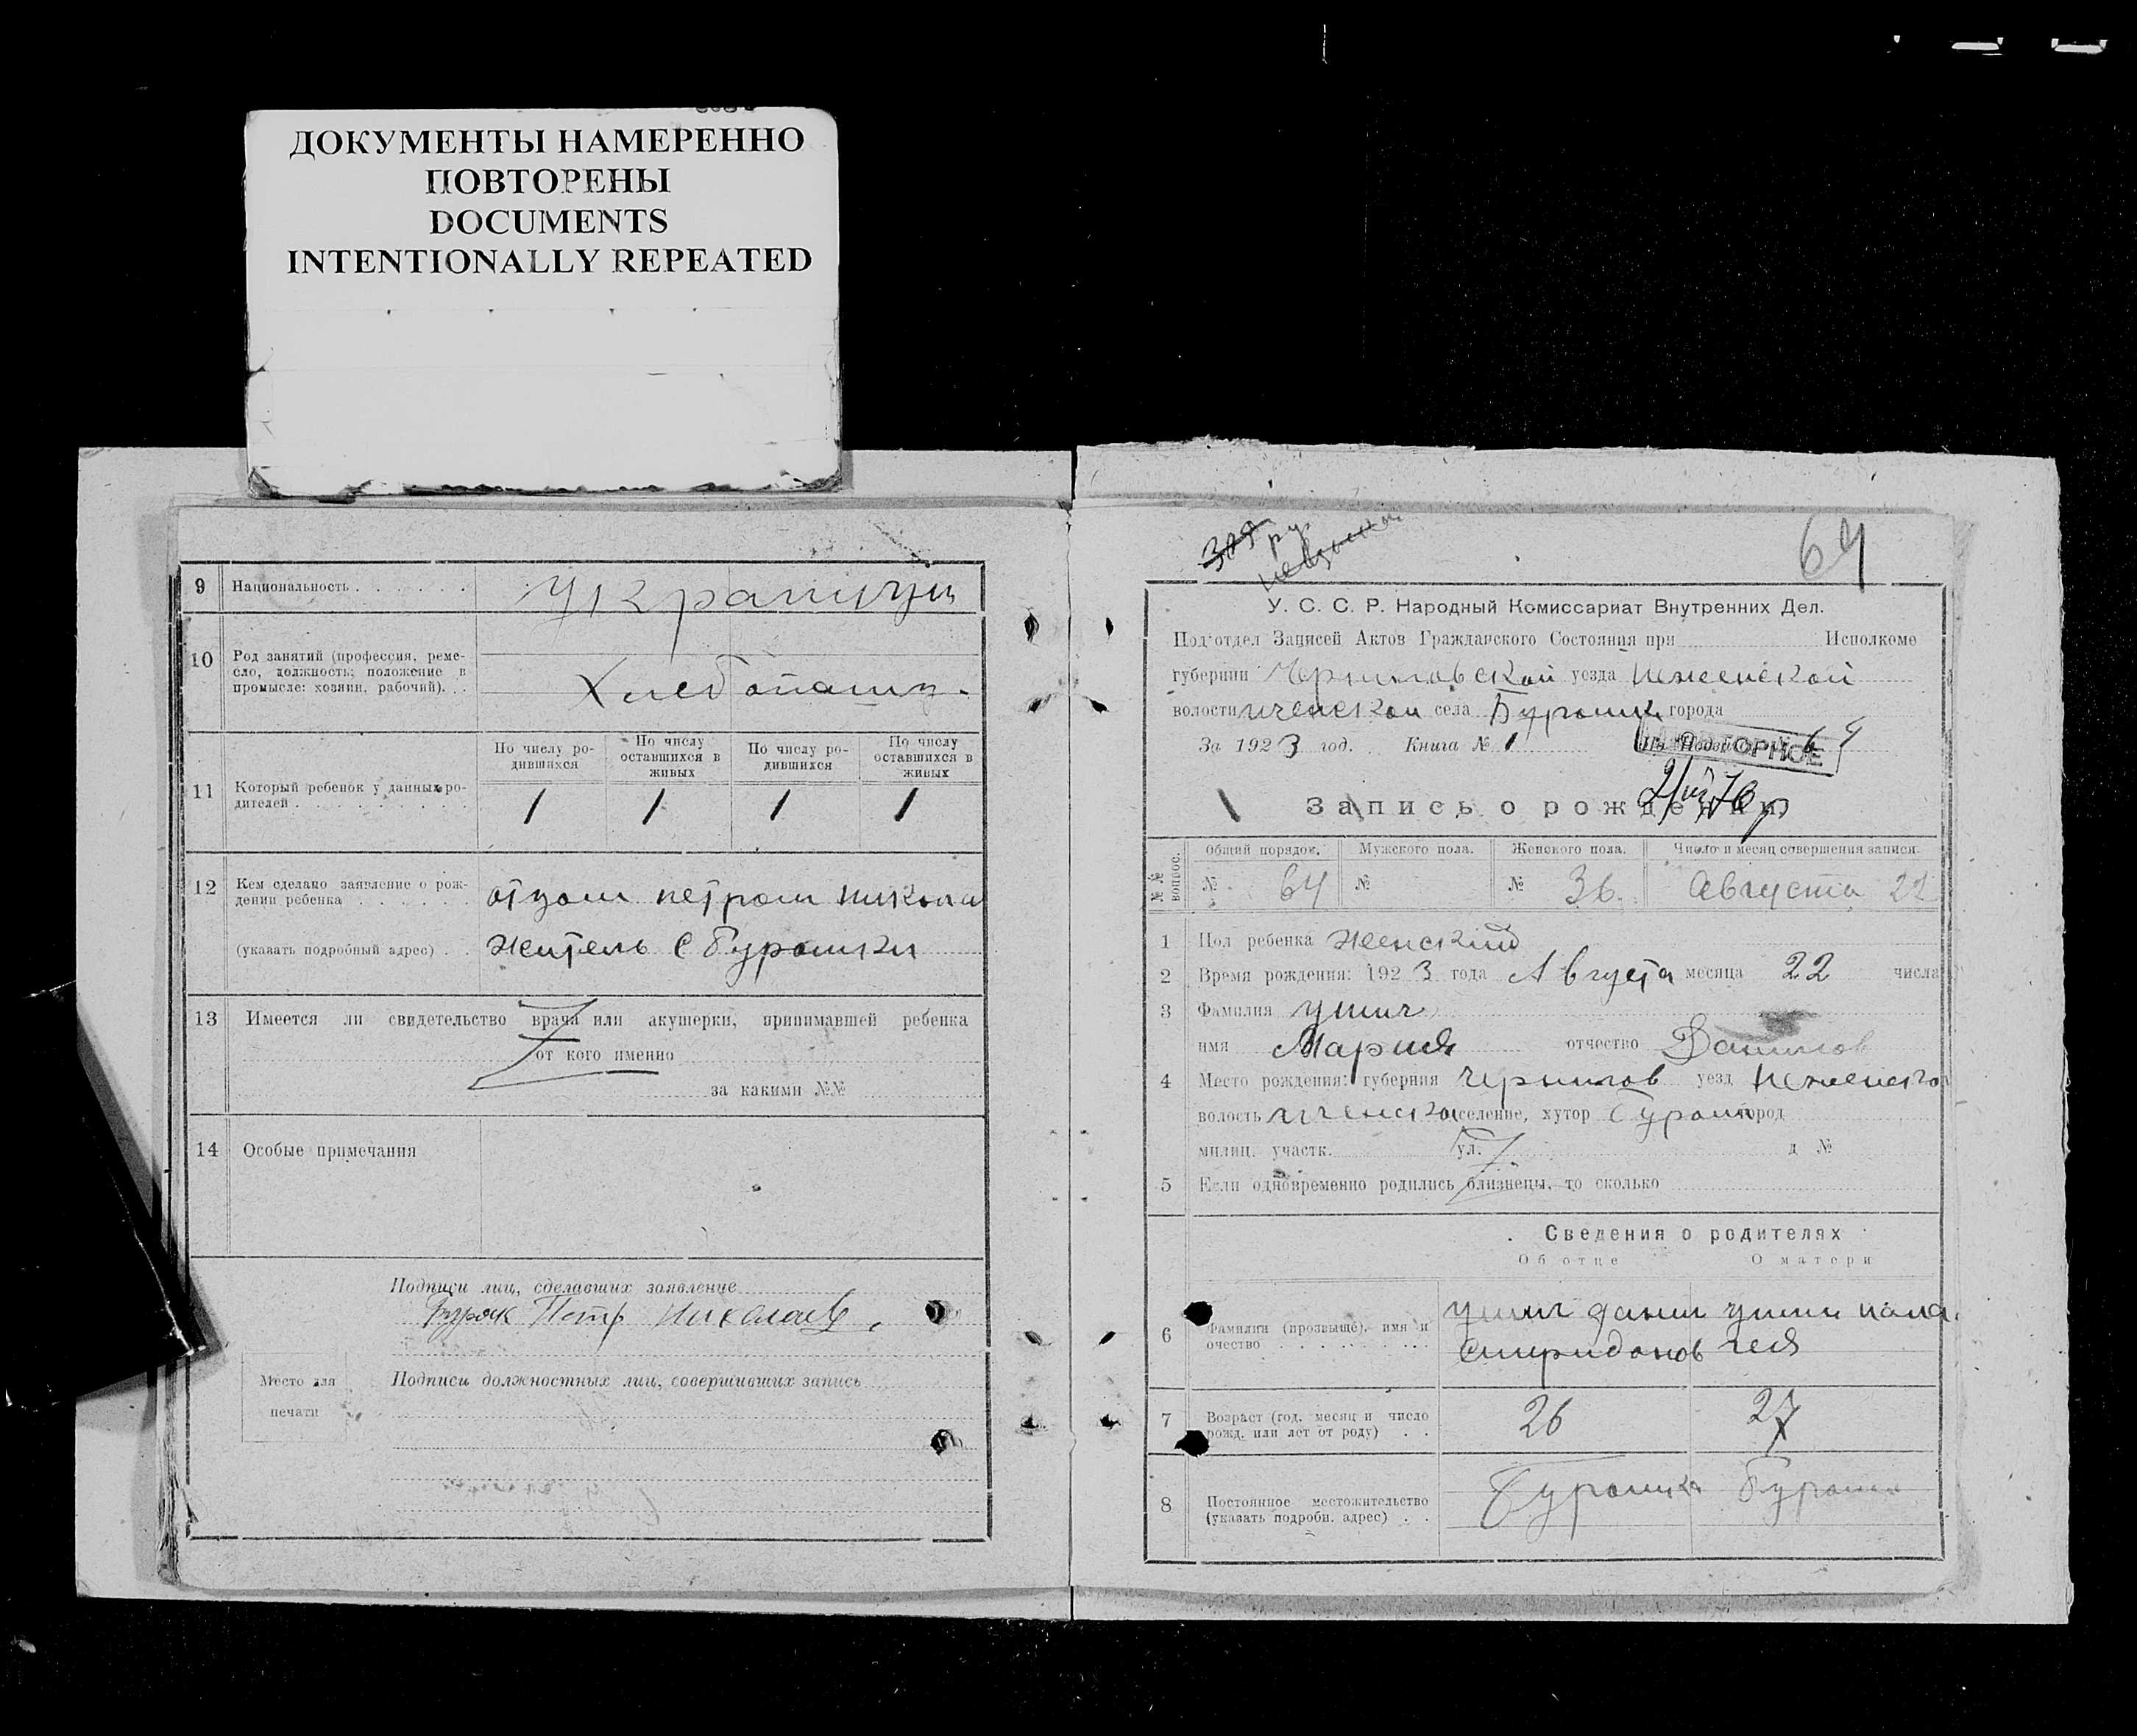 ДОКУМЕНТЫ НАМЕРЕННО
ПОВТОРЕНЫ
DOCUMENTS
INTENTIONALLY REPEATED
9 Национальность
10 Род занятий (профессия, реме-
сло, должность; положение в
промысле: хозяин, рабочий).
Хлебопашц.
11 Который ребенок у данных ро-
дителей
По числу ро-
дившихся
По числу
оставшихся в
живых
По числу ро-
дившихся
По числу
оставшихся в
живых
1 1 1 1
12 Кем сделано заявление о рож-
дении ребенка отцом петром никола
(указать подробный адрес) житель с бурошки
13 Имеется ли свидетельство врача или акушерки, принимавшей ребенка
от кого именно
за какими №№
14 Особые примечания
Подписи лиц, сделавших заявление
Буряк Петр Николаев.
Место для
печати
Подписи должностных лиц, совершивших запись
64
У. С. С. Р. Народный Комиссариат Внутренних Дел.
Под'отдел Записей Актов Гражданского Состояния при Исполкоме
губернии Черниговской уезда Неженской
волости иченской села города
За 1923 год. Книга № 1 64
Запись о рождении
№№ вопрос.
Общий порядок. Мужского пола. Женского пола. Число и месяц совершения записи
№ 64 № № 36. Августа 22
1 Пол ребенка женский
2 Время рождения: 1923 года Августа месяца 22 числа
3 Фамилия
имя Мария отчество Данилов
4 Место рождения: губерния Чернигов уезд
волость селение, хутор город
милиц. участк. ул. д №
5 Если одновременно родились близнецы, то сколько
Сведения о родителях
Об отце О матери
6 Фамилия (прозвище), имя и
очество
Спиридонов гея
7 Возраст (год, месяц и число
рожд. или лет от роду) 26 27
8 Постоянное местожительство
(указать подробн. адрес)